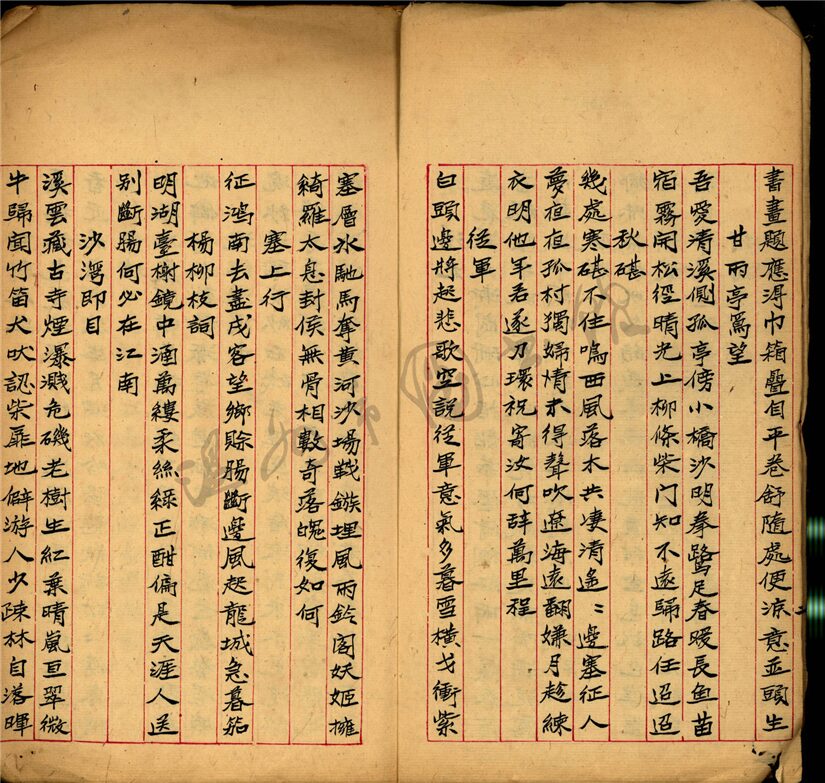 書畫題應淂巾箱疊自平卷舒隨處便涼意並頭生
甘雨亭寫望
吾愛清溪側孤亭傍小橋沙明拳鷺足春暖長魚苗
宿霧開松徑晴光上柳條柴門知不遠歸路任迢迢
秋碪
幾處寒碪不住鳴西風落木共凄清遙〻邊塞征人
夢夜夜孤村獨婦情未得聲吹遼海遠翻嫌月趁練
衣明他年若遂刀環祝寄汝何辭萬里程
從軍
白頭邊將起悲歌空說從軍意氣多暮雪橫戈衝紫
塞層冰馳馬奪黄河沙場戟鏃埋風雨鈴閣妖姬擁
綺羅太息封侯無骨相數奇落魄復如何
塞上行
征鴻南去盡戍客望鄉賒腸斷邊風起龍城急暮笳
楊柳枝詞
明湖臺榭鏡中涵萬縷柔絲綠正酣偏是天涯人送
別斷腸何必在江南
沙灣即目
溪雲藏古寺煙瀑濺危磯老樹生紅葉晴嵐亘翠微
牛歸聞竹笛犬吠認柴扉地僻游人少疎林自落暉